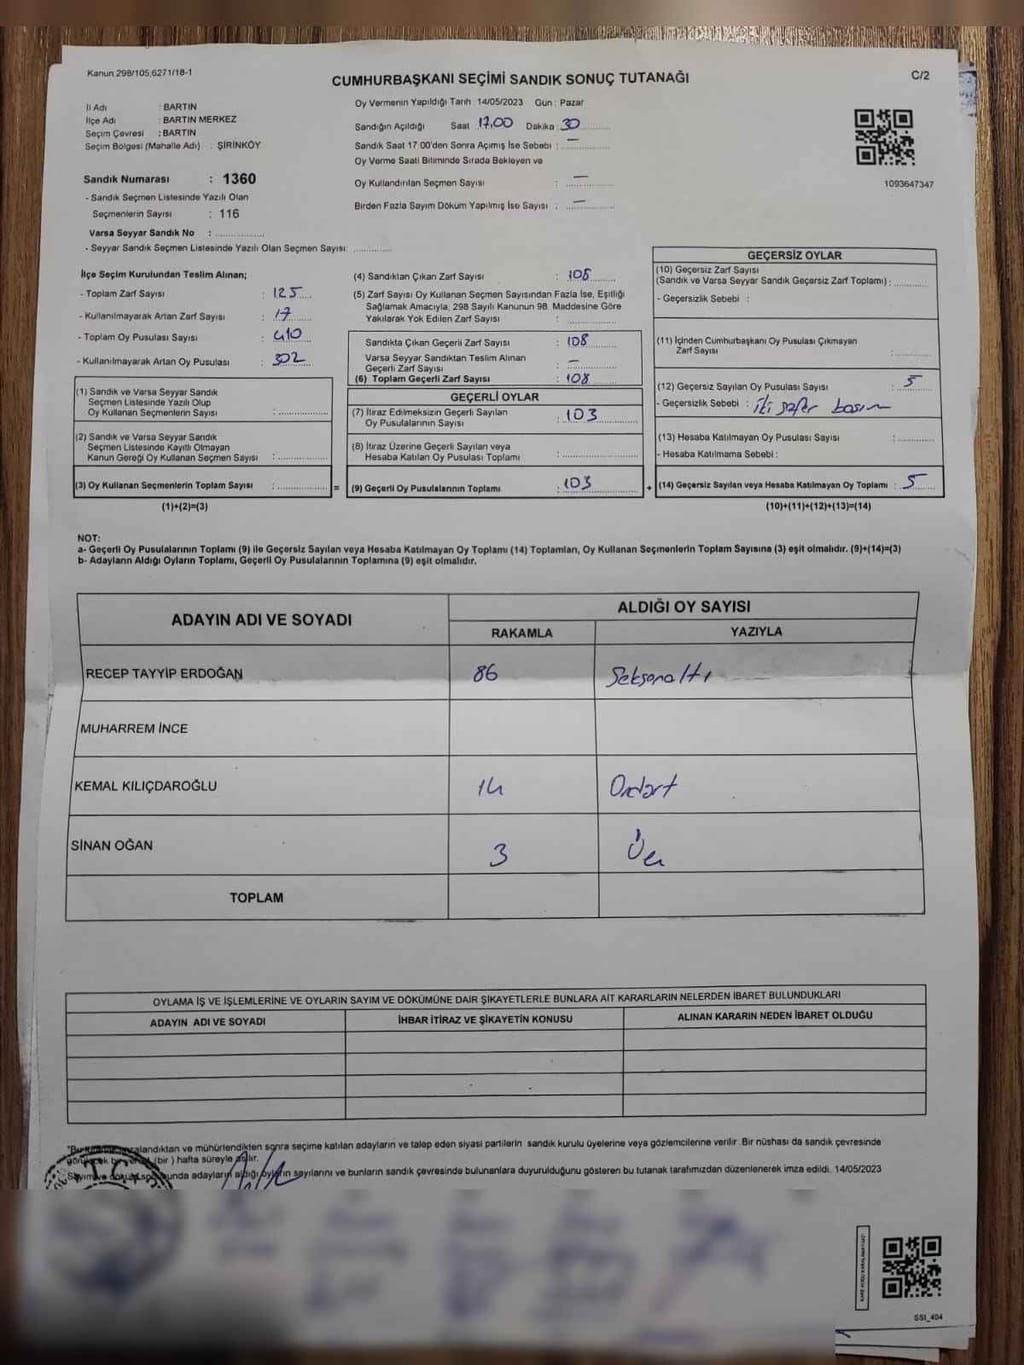 Kanun 298/105,6271/18-1
CUMHURBAŞKANI SEÇİMİ SANDIK SONUÇ TUTANAĞI
C/2
İl Adı : BARTIN
İlçe Adı : BARTIN MERKEZ
Seçim Çevresi : BARTIN
Seçim Bölgesi (Mahalle Adı) : ŞİRİNKÖY
Sandık Numarası : 1360
- Sandık Seçmen Listesinde Yazılı Olan
Seçmenlerin Sayısı : 116
Varsa Seyyar Sandık No :
- Seyyar Sandık Seçmen Listesinde Yazılı Olan Seçmen Sayısı:
Oy Vermenin Yapıldığı Tarih : 14/05/2023 Gün : Pazar
Sandığın Açıldığı Saat 17.00 Dakika : 30
Sandık Saat 17.00'den Sonra Açımış İse Sebebi : —
Oy Verme Saati Bitiminde Sırada Bekleyen ve
Oy Kullandırılan Seçmen Sayısı : —
Birden Fazla Sayım Döküm Yapılmış İse Sayısı : —
1093647347
İlçe Seçim Kurulundan Teslim Alınan;
- Toplam Zarf Sayısı : 125
- Kullanılmayarak Artan Zarf Sayısı : 17
- Toplam Oy Pusulası Sayısı : 410
- Kullanılmayarak Artan Oy Pusulası : 302
(1) Sandık ve Varsa Seyyar Sandık
Seçmen Listesinde Yazılı Olup
Oy Kullanan Seçmenlerin Sayısı :
(2) Sandık ve Varsa Seyyar Sandık
Seçmen Listesinde Kayıtlı Olmayan
Kanun Gereği Oy Kullanan Seçmen Sayısı :
(3) Oy Kullanan Seçmenlerin Toplam Sayısı : =
(1)+(2)=(3)
(4) Sandıktan Çıkan Zarf Sayısı : 108
(5) Zarf Sayısı Oy Kullanan Seçmen Sayısından Fazla İse, Eşitliği
Sağlamak Amacıyla, 298 Sayılı Kanunun 98. Maddesine Göre
Yakılarak Yok Edilen Zarf Sayısı :
Sandıkta Çıkan Geçerli Zarf Sayısı : 108
Varsa Seyyar Sandıktan Teslim Alınan
Geçerli Zarf Sayısı : —
(6) Toplam Geçerli Zarf Sayısı : 108
GEÇERLİ OYLAR
(7) İtiraz Edilmeksizin Geçerli Sayılan
Oy Pusulalarının Sayısı : 103
(8) İtiraz Üzerine Geçerli Sayılan veya
Hesaba Katılan Oy Pusulası Toplamı :
(9) Geçerli Oy Pusulalarının Toplamı : 103 +
GEÇERSİZ OYLAR
(10) Geçersiz Zarf Sayısı
(Sandık ve Varsa Seyyar Sandık Geçersiz Zarf Toplamı) :
- Geçersizlik Sebebi :
(11) İçinden Cumhurbaşkanı Oy Pusulası Çıkmayan
Zarf Sayısı :
(12) Geçersiz Sayılan Oy Pusulası Sayısı : 5
- Geçersizlik Sebebi : iki sefer basım
(13) Hesaba Katılmayan Oy Pusulası Sayısı :
- Hesaba Katılmama Sebebi :
(14) Geçersiz Sayılan veya Hesaba Katılmayan Oy Toplamı : 5
(10)+(11)+(12)+(13)=(14)
NOT:
a- Geçerli Oy Pusulalarının Toplamı (9) ile Geçersiz Sayılan veya Hesaba Katılmayan Oy Toplamı (14) Toplamları, Oy Kullanan Seçmenlerin Toplam Sayısına (3) eşit olmalıdır. (9)+(14)=(3)
b- Adayların Aldığı Oyların Toplamı, Geçerli Oy Pusulalarının Toplamına (9) eşit olmalıdır.
ADAYIN ADI VE SOYADI
ALDIĞI OY SAYISI
RAKAMLA YAZIYLA
RECEP TAYYİP ERDOĞAN 86 Seksenaltı
MUHARREM İNCE
KEMAL KILIÇDAROĞLU 14 Ondört
SİNAN OĞAN 3 Üç
TOPLAM
OYLAMA İŞ VE İŞLEMLERİNE VE OYLARIN SAYIM VE DÖKÜMÜNE DAİR ŞİKAYETLERLE BUNLARA AİT KARARLARIN NELERDEN İBARET BULUNDUKLARI
ADAYIN ADI VE SOYADI İHBAR İTİRAZ VE ŞİKAYETİN KONUSU ALINAN KARARIN NEDEN İBARET OLDUĞU
sonra seçime katılan adayların ve talep eden siyasi partilerin sandık kurulu üyelerine veya gözlemcilerine verilir. Bir nüshası da sandık çevresinde
(bir) hafta süreyle asılır.
adayların aldığı oyların sayılarını ve bunların sandık çevresinde bulunanlara duyurulduğunu gösteren bu tutanak tarafımızdan düzenlenerek imza edildi. 14/05/2023
T.C.
SSI_404